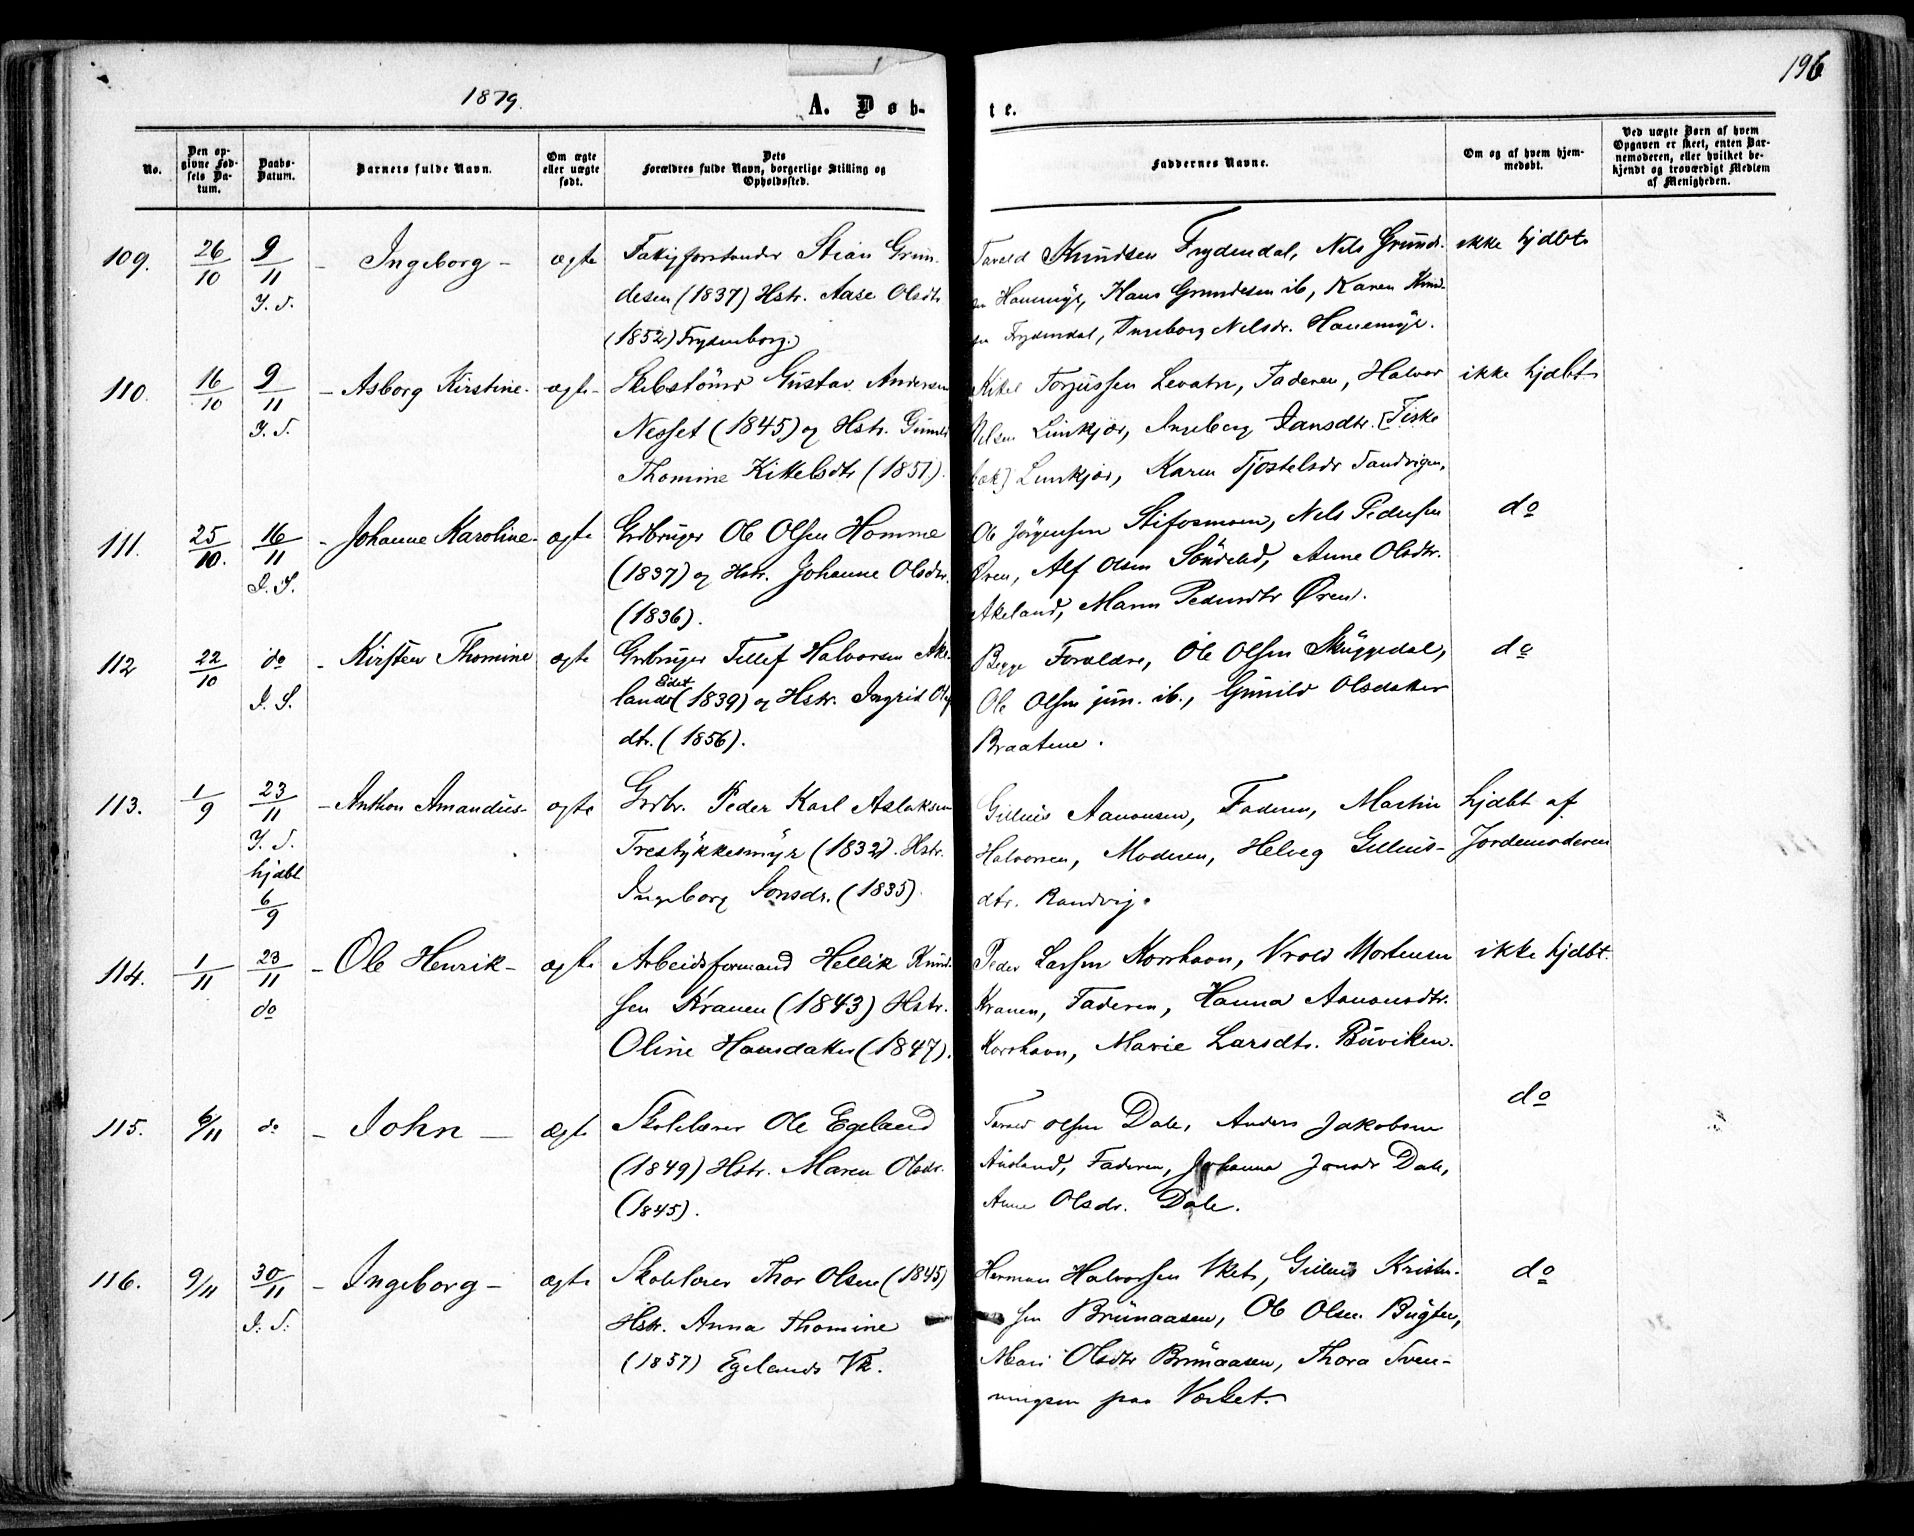 196
1879.
A. Døb-
te.
No.
Den opgivne Fødsels Datum.
Daabs-Datum.
Barnets fulde Navn.
Om ægte eller uægte født.
Dets Forældres fulde Navn, borgerlige Stilling og Opholdssted.
Faddernes Navne.
Om og af hvem hjemmedøbt.
Ved uægte Børn af hvem Opgaven er skeet, enten Barnemoderen, eller hvilket bekjendt og troværdigt Medlem af Menigheden.
109. 26/10 9/11 – Ingeborg – ægte
Stian Grun-
desen (1837) Hstr. Aase Olsdtr
(1852) Frydenborg.
Knudsen Frydendal, Nils Grunde- ikke hjdbt
Hanemyr, Hans Grundesen ib, Karen Knud-
Frydendal, Ingeborg Nelsdr. Hanemyr.
110. 16/10 9/11 – Asborg Kirstine – ægte –
Skibstømr Gustav Andersen
Nesset (1845) og Hstr. Gunild
Thomine Kittelsdtr (1851).
Kittel Torjussen Levatn, Faderen, Halvor ikke hjdbt
Nilsen Limkjær, Ingeborg Jansdtr. (Fiske
bæk) Limkjær, Karen Tjostelsdr Sandvigen,
111. 25/10. 16/11 – Johanne Karoline – ægte
Grdbruger Ole Olsen Homme
(1837) og Hstr. Johanne Olsdtr.
(1836).
Ole Jörgensen Stifosmoen, Nels Pedersen do
Øren, Alf Olsen Söndeled, Anne Olsdtr.
Akeland, Maren Pedersdtr Øren.
112 22/10 do – Kirsten Thomine ægte
Grbruger Tellef Halvorsen Ake-
Eidet
land (1839) og Hstr. Ingrid Ols
dtr. (1856).
Begge Forældre, Ole Olsen Skuggedal, do
Ole Olsen jun. ib., Gunild Olsdatter
Braatene.
113. 1/9 23/11 – Anthon Amandus – ægte
hjdbt
6/9
Grdbr. Peder Karl Aslaksen
Trestykkesmyr (1832). Hstr.
Ingeborg Jonsdr. (1835).
Gillius Aanonsen, Faderen, Martin hjdbt af
Halvorsen, Moderen, Helveg Gillius- Jordemoderen
dtr. Randvig.
114. 1/11 23/11 – Ole Henrik – ægte
do
Arbeidsformand Hellik Knud-
sen Kranen (1843) Hstr.
Oline Hansdatter (1847).
Peder Larsen Korshavn, Vrold Mortensen ikke hjdbt.
Kranen, Faderen, Hanna Aanonsdtr.
Korshavn, Marie Larsdtr. Buviken.
115. 6/11 do – John – ægte
Skolelærer Ole Egeland
(1849) Hstr. Maren Olsdr.
(1845).
Olsen Dale, Anders Jakobsen do
Ausland, Faderen, Johanne Jonsdr Dale,
Anne Olsdr. Dale.
116. 9/11 30/11 – Ingeborg – ægte
Skolelærer Thor Olsen (1845)
Hstr. Anna Thomine
(1857) Egelands Vk.
Herman Halvorsen Vket, Gillius Kristen- do
sen Brunaasen, Ole Olsen Bugten,
Mari Olsdtr Brunaasen, Thora Sven-
ningsen paa Værket.